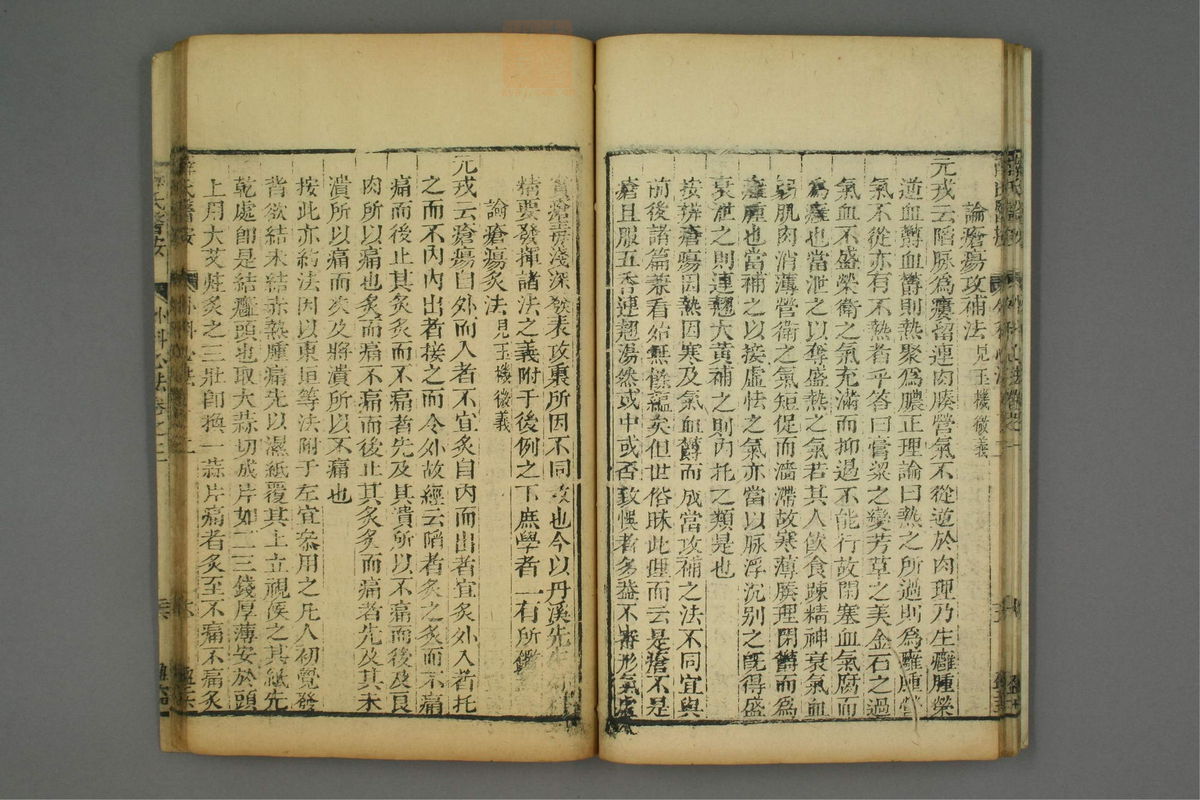 論瘡瘍攻補法見玉機微義
元戎云陷脉為瘻留連肉腠營氣不從逆於肉理乃生癰腫榮
逆血鬱血鬱則熱聚為膿正理論曰熱之所過則為癰腫營
氣不從亦有不熱者乎答曰膏粱之變芳草之美金石之過
氣血不盛榮衛之氣充滿而抑遏不能行故閉塞血氣腐而
為癰也當泄之以奪盛熱之氣若其人飲食疎精神衰氣血
弱肌肉消薄營衛之氣短促而濇滯故寒薄腠理閉鬱而為
癰腫也當補之以接虛怯之氣亦當以脉浮沉別之既得盛
衰泄之則連翹大黃補之則內托之類是也
按辨瘡瘍因熱因寒及氣血鬱而成當攻補之法不同宜與
前後諸篇兼看始無餘蘊矣但世俗昧此理而云是瘡不是
瘡且服五香連翹湯然或中或否致悞者多盖不審形氣處
瘡毒淺深發表攻裏所因不同故也今以丹溪先生
精要發揮諸法之義附于後例之下庶學者一有所鑑
論瘡瘍灸法見玉機微義
元戎云瘡瘍自外而入者不宜灸自內而出者宜灸外入者托
之而不內內出者接之而令外故經云陷者灸之灸而不痛
痛而後止其灸灸而不痛者先及其潰所以不痛而後及良
肉所以痛也灸而痛不痛而後止其灸灸而痛者先及其未
潰所以痛而次及將潰所以不痛也
按此亦約法因以東垣等法附于左宜叅用之凡人初覺發
背欲結未結赤熱腫痛先以濕紙覆其上立視候之其紙先
乾處卽是結癰頭也取大蒜切成片如二三錢厚薄安於頭
上用大艾炷灸之三壯卽換一蒜片痛者灸至不痛不痛灸
薛氏醫按 外科心法 卷之二